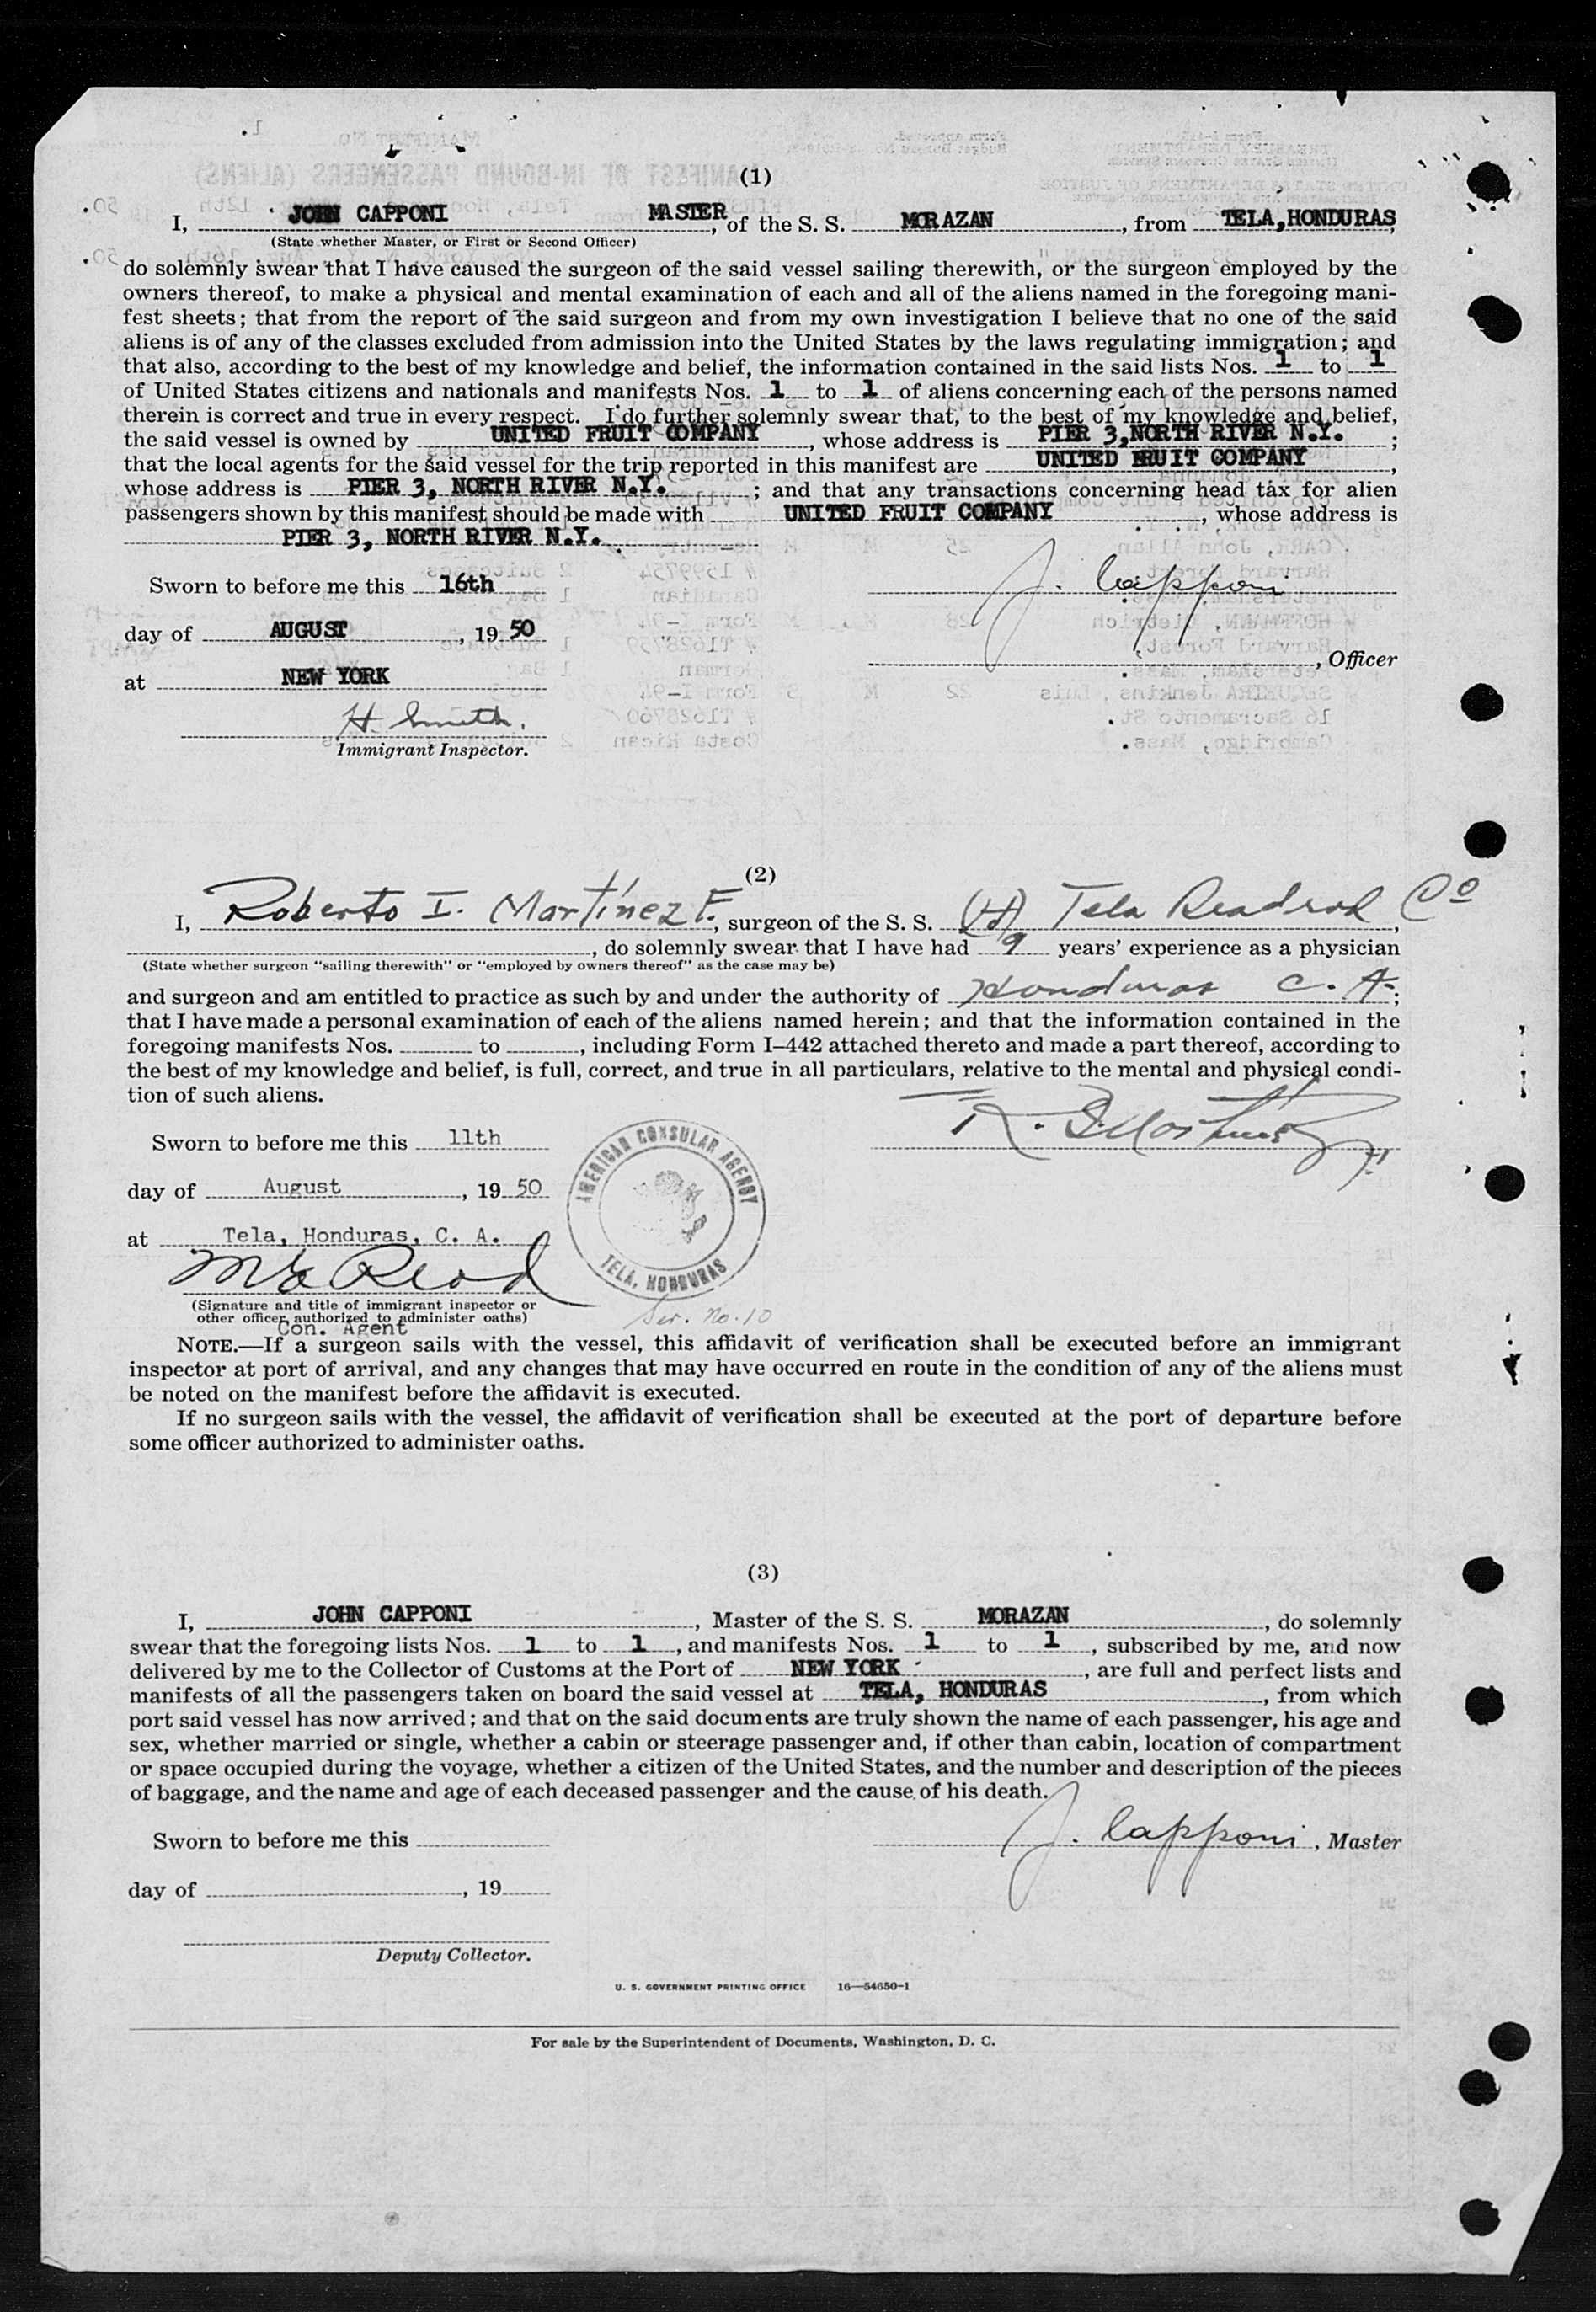 (1)
I, JOHN CAPPONI MASTER, of the S. S. MORAZAN, from TELA, HONDURAS,
(State whether Master, or First or Second Officer)
do solemnly swear that I have caused the surgeon of the said vessel sailing therewith, or the surgeon employed by the
owners thereof, to make a physical and mental examination of each and all of the aliens named in the foregoing mani-
fest sheets; that from the report of the said surgeon and from my own investigation I believe that no one of the said
aliens is of any of the classes excluded from admission into the United States by the laws regulating immigration; and
that also, according to the best of my knowledge and belief, the information contained in the said lists Nos. 1 to 1
of United States citizens and nationals and manifests Nos. 1 to 1 of aliens concerning each of the persons named
therein is correct and true in every respect. I do further solemnly swear that, to the best of my knowledge and belief,
the said vessel is owned by UNITED FRUIT COMPANY, whose address is PIER 3, NORTH RIVER N.Y. ;
that the local agents for the said vessel for the trip reported in this manifest are UNITED FRUIT COMPANY,
whose address is PIER 3, NORTH RIVER N.Y. ; and that any transactions concerning head tax for alien
passengers shown by this manifest should be made with UNITED FRUIT COMPANY, whose address is
PIER 3, NORTH RIVER N.Y.
Sworn to before me this 16th
J. Capponi
day of AUGUST, 19 50
, Officer
at NEW YORK
H. Smith.
Immigrant Inspector.
(2)
I, Roberto I. Martínez F., surgeon of the S. S. (H) Tela Railroad Co,
, do solemnly swear that I have had 9 years' experience as a physician
(State whether surgeon "sailing therewith" or "employed by owners thereof" as the case may be)
and surgeon and am entitled to practice as such by and under the authority of Honduras C. A. ;
that I have made a personal examination of each of the aliens named herein; and that the information contained in the
foregoing manifests Nos. to , including Form I–442 attached thereto and made a part thereof, according to
the best of my knowledge and belief, is full, correct, and true in all particulars, relative to the mental and physical condi-
tion of such aliens.
Sworn to before me this 11th
day of August, 19 50
AMERICAN CONSULAR AGENCY
TELA, HONDURAS
at Tela, Honduras, C. A.
(Signature and title of immigrant inspector or
other officer authorized to administer oaths)
Con. Agent
Ser. No. 10
NOTE.—If a surgeon sails with the vessel, this affidavit of verification shall be executed before an immigrant
inspector at port of arrival, and any changes that may have occurred en route in the condition of any of the aliens must
be noted on the manifest before the affidavit is executed.
If no surgeon sails with the vessel, the affidavit of verification shall be executed at the port of departure before
some officer authorized to administer oaths.
(3)
I, JOHN CAPPONI, Master of the S. S. MORAZAN, do solemnly
swear that the foregoing lists Nos. 1 to 1, and manifests Nos. 1 to 1, subscribed by me, and now
delivered by me to the Collector of Customs at the Port of NEW YORK, are full and perfect lists and
manifests of all the passengers taken on board the said vessel at TELA, HONDURAS, from which
port said vessel has now arrived; and that on the said documents are truly shown the name of each passenger, his age and
sex, whether married or single, whether a cabin or steerage passenger and, if other than cabin, location of compartment
or space occupied during the voyage, whether a citizen of the United States, and the number and description of the pieces
of baggage, and the name and age of each deceased passenger and the cause of his death.
Sworn to before me this
J. Capponi, Master
day of , 19
Deputy Collector.
U. S. GOVERNMENT PRINTING OFFICE 16—54650-1
For sale by the Superintendent of Documents, Washington, D. C.